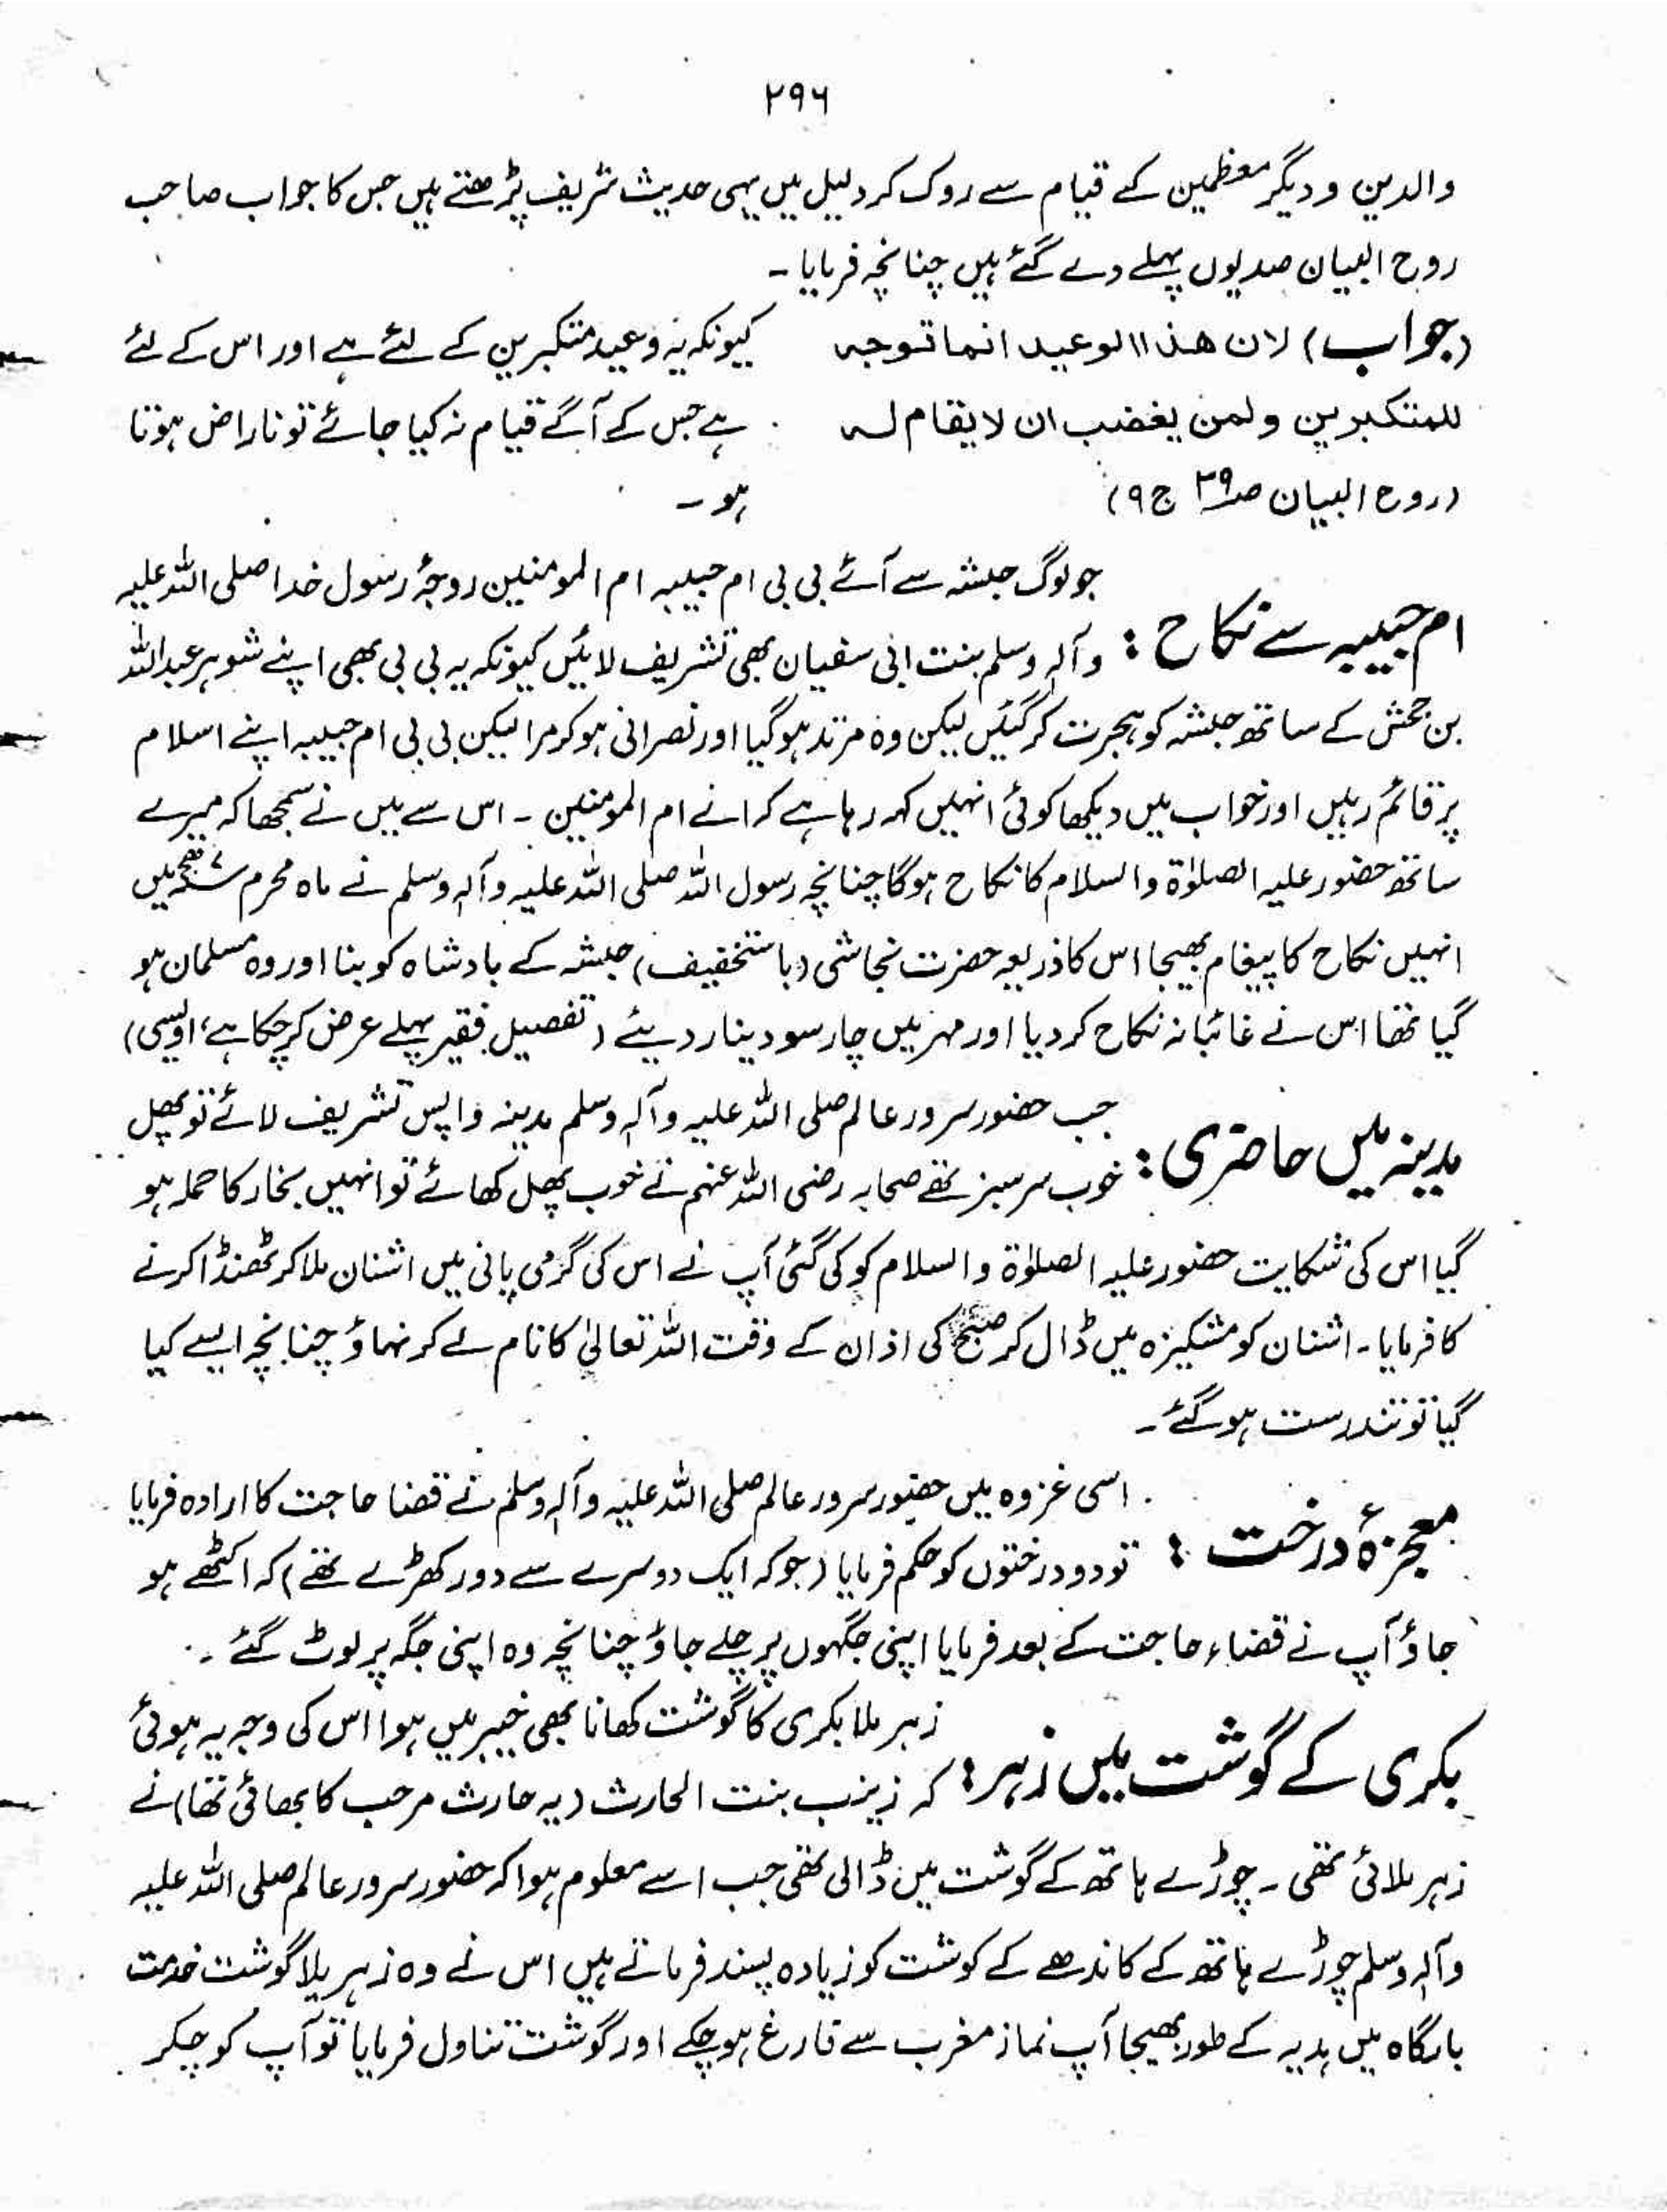 ۲۹۶
والدین و دیگر معظمین کے قیام سے روک کر دلیل میں یہی حدیث شریف پڑھتے ہیں جس کا جواب صاحب
روح البیان صدیوں پہلے دے گئے ہیں چنانچہ فرمایا ۔
(جواب) لان ھذا الوعید انما توجہ کیونکہ یہ وعید متکبرین کے لئے ہے اور اس کے لئے
للمتکبرین ولمن یغضب ان لا یقام لہ ہے جس کے آگے قیام نہ کیا جائے تو ناراض ہوتا
(روح البیان صـ۳۹ ج ۹) ہو ۔
جو لوگ حبشہ سے آئے بی بی ام حبیبہ ام المومنین زوجۂ رسول خدا صلی اللہ علیہ
ام حبیبہ سے نکاح : وآلہ وسلم بنت ابی سفیان بھی تشریف لائیں کیونکہ یہ بی بی بھی اپنے شوہر عبداللہ
بن جحش کے ساتھ حبشہ کو ہجرت کر گئیں لیکن وہ مرتد ہو گیا اور نصرانی ہو کر مرا لیکن بی بی ام حبیبہ اپنے اسلام
پر قائم رہیں اور خواب میں دیکھا کوئی انہیں کہہ رہا ہے کہ اے ام المومنین ۔ اس سے میں نے سمجھا کہ میرے
ساتھ حضور علیہ الصلوٰۃ والسلام کا نکاح ہو گا چنانچہ رسول اللہ صلی اللہ علیہ وآلہ وسلم نے ماہ محرم ۷ھ میں
انہیں نکاح کا پیغام بھیجا اس کا ذریعہ حضرت نجاشی (باستخفیف) حبشہ کے بادشاہ کو بنا اور وہ مسلمان ہو
گیا تھا اس نے غائبانہ نکاح کر دیا اور مہر میں چار سو دینار دیئے (تفصیل فقیر پہلے عرض کر چکا ہے، اویسی)
جب حضور سرور عالم صلی اللہ علیہ وآلہ وسلم مدینہ واپس تشریف لائے تو پھل
مدینہ میں حاضری : خوب سرسبز تھے صحابہ رضی اللہ عنہم نے خوب پھل کھائے تو انہیں بخار کا حملہ ہو
گیا اس کی شکایت حضور علیہ الصلوٰۃ والسلام کو کی گئی آپ نے اس کی گرمی پانی میں اشنان ملا کر ٹھنڈا کرنے
کا فرمایا ۔ اشنان کو مشکیزہ میں ڈال کر صبح کی اذان کے وقت اللہ تعالیٰ کا نام لے کر نہاؤ چنانچہ ایسے کیا
گیا تو تندرست ہو گئے ۔
اسی غزوہ میں حضور سرور عالم صلی اللہ علیہ وآلہ وسلم نے قضا حاجت کا ارادہ فرمایا
معجزۂ درخت : تو دو درختوں کو حکم فرمایا (جو کہ ایک دوسرے سے دور کھڑے تھے) کہ اکٹھے ہو
جاؤ آپ نے قضاء حاجت کے بعد فرمایا اپنی جگہوں پر چلے جاؤ چنانچہ وہ اپنی جگہ پر لوٹ گئے ۔
زہر ملا بکری کا گوشت کھانا بھی خیبر میں ہوا اس کی وجہ یہ ہوئی
بکری کے گوشت میں زہر : کہ زینب بنت الحارث (یہ حارث مرحب کا بھائی تھا) نے
زہر ملائی تھی ۔ چوڑے ہاتھ کے گوشت میں ڈالی تھی جب اسے معلوم ہوا کہ حضور سرور عالم صلی اللہ علیہ
وآلہ وسلم چوڑے ہاتھ کے کاندھے کے کوشت کو زیادہ پسند فرماتے ہیں اس نے وہ زہر یلا گوشت خدمت
بارگاہ میں ہدیہ کے طور بھیجا آپ نماز مغرب سے فارغ ہو چکے اور گوشت تناول فرمایا تو آپ کو چکر